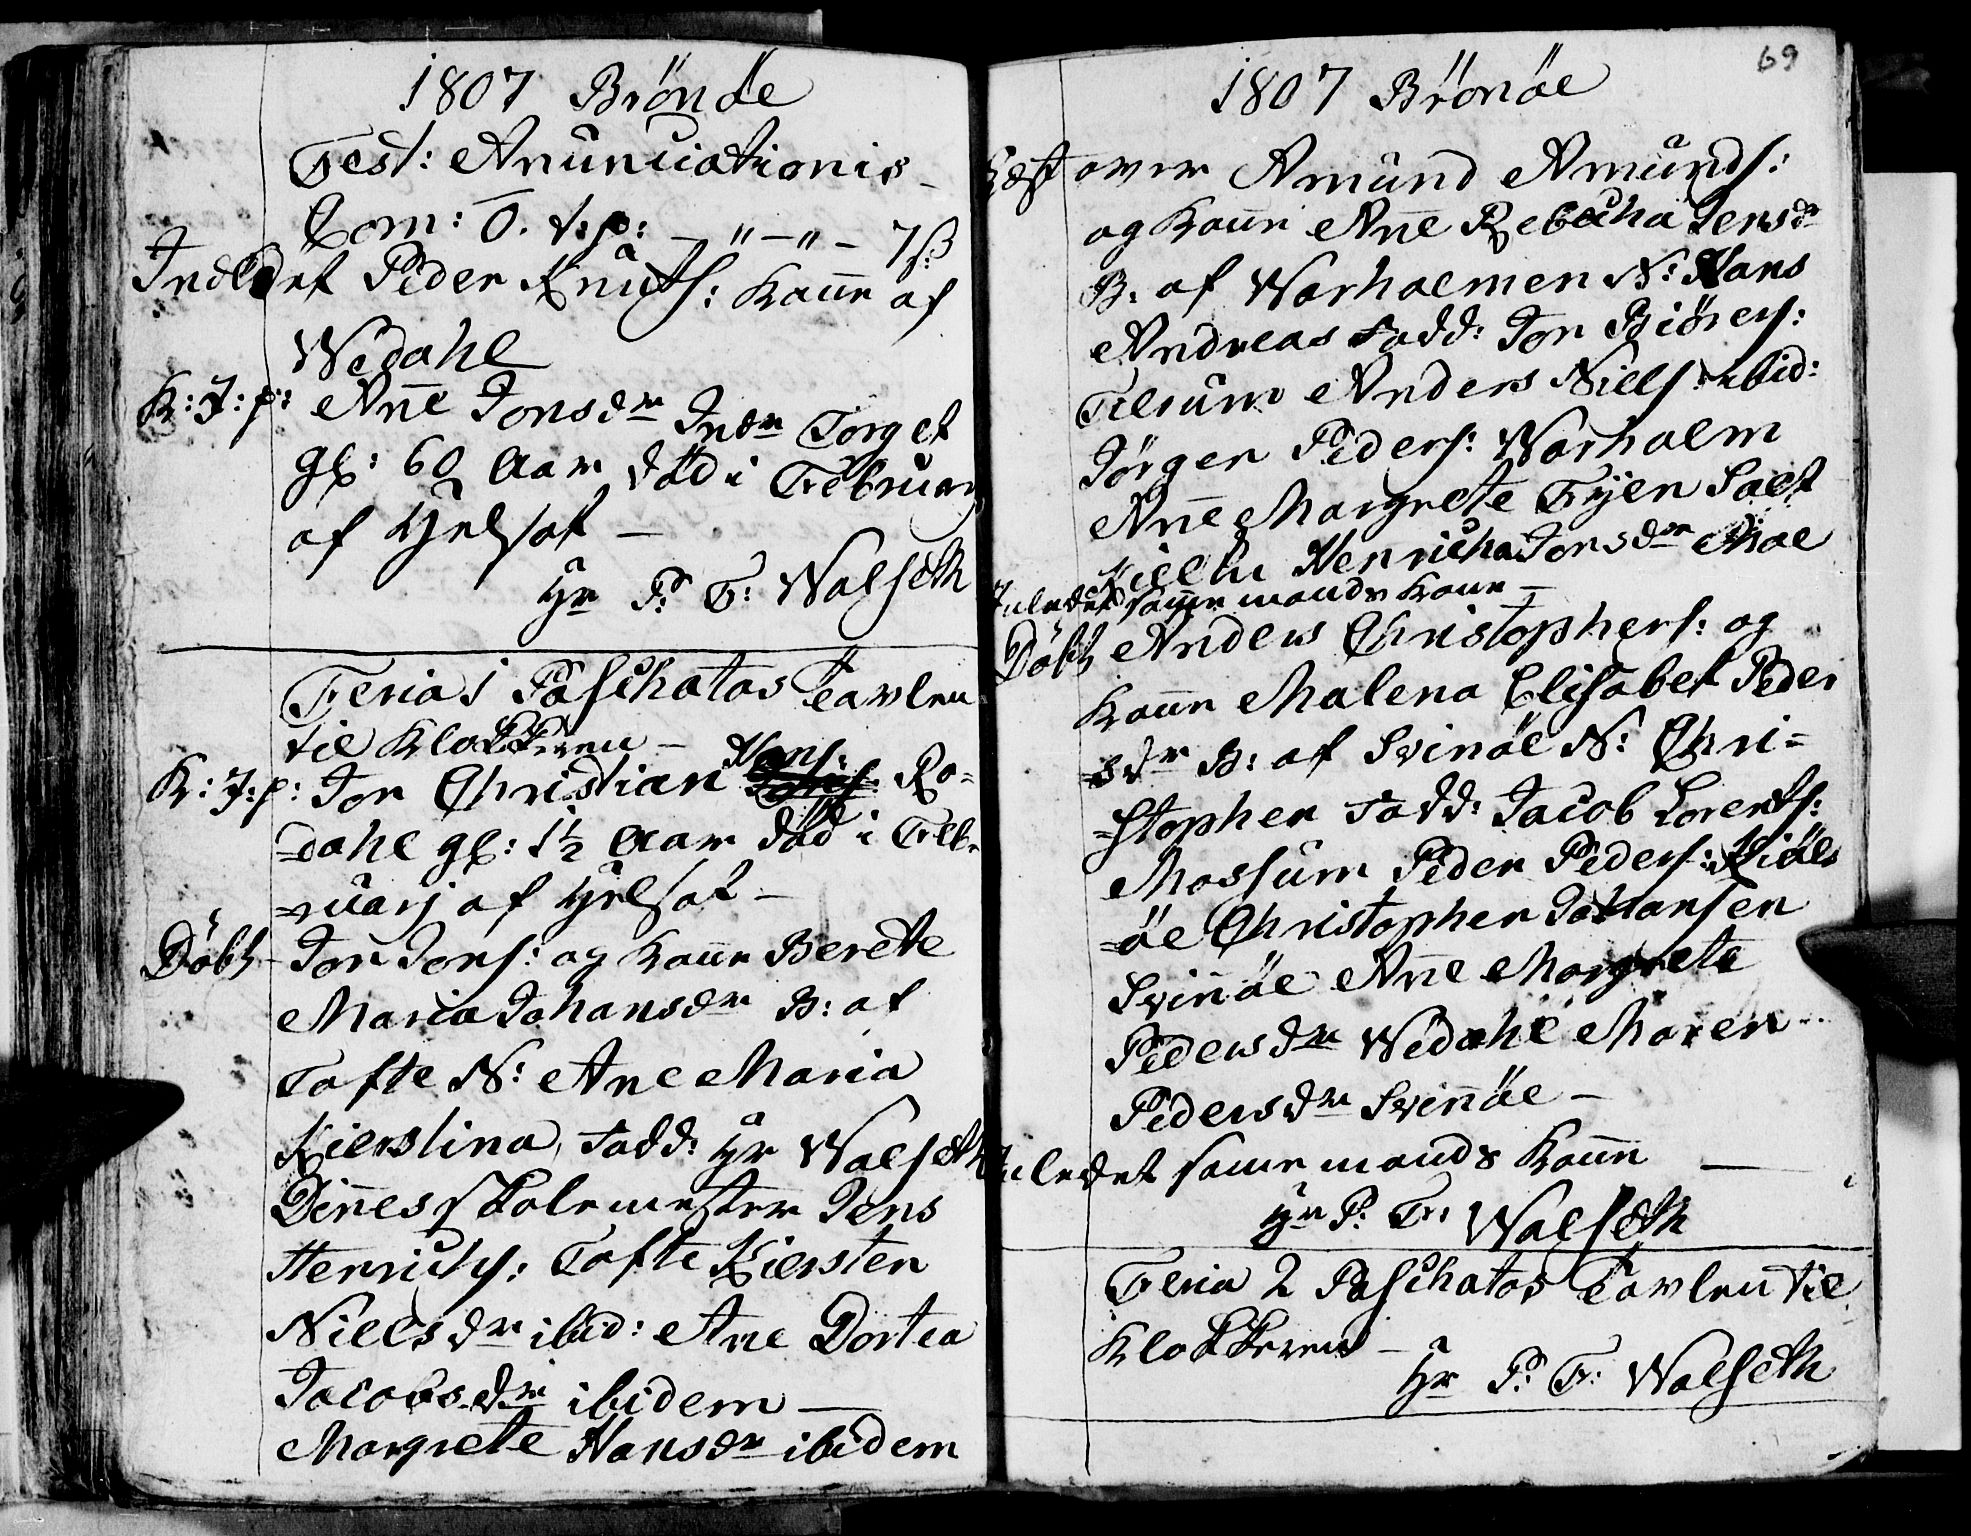 1807 Brönöe
Fest: Anunciationis
Dom: O. t: p: – " – " – 7 ß
Indledet Peder Knuts: Kone af
Wedahl
K: J: p: Anne Jonsdr Indr Torget
gl: 60 Aar död i Februarj
af Helsot –
Hr P: F: Walseth
Feria 1 Paschatos Tavlen
til Klokkeren –
K: J: p: Jon Christian Hans: Ro=
=dahl gl: 1½ Aar död i Feb=
=ruarj af Helsot –
Döbt Jon Jons: og Kone Berete
Maria Johansdr B: af
Tofte N: Ane Maria
Kierstina, Fadd: Hr Walseth
Dinnes skolemester Jens
Henrichs: Tofte Kiersten
Nielsdr ibid: Ane Dortea
Jacobsdr ibidem
Margrete Hansdr ibidem
69
1807 Brönöe
Læst over Amund Amunds:
og Kone Ane Rebecha Jensdr
B: af Warholmen N: Hans
Andreas Fadd: Jon Biörs:
Tilrum Anders Niels: ibid:
Jörgen Peders: Warholm
Anne Margrete Tijen Salt
Henricha Jonsdr Moe
Inledet samme mands Kone –
Döbt Anders Christophers: og
Kone Malena Elisabet Peder
=sdr B: af Svinöe N: Chri=
=stopher Fadd: Jacob Lorents:
Mossum Peder Peders: Kiöls
=öe Christopher Johansen
Svinöe Anne Margrete
Pedersdr Wedahl Maren
Pedersdr Svinöe –
Inledet samme mands Kone
Hr P: F: Walseth
Feria 2 Paschatos Tavlen til
Klokkeren –
Hr P: F: Walseth